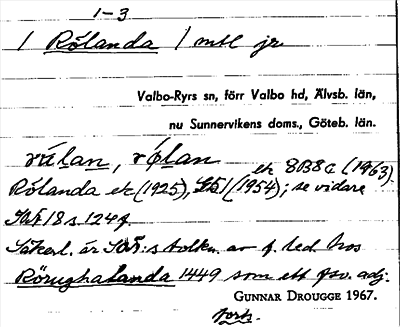 1-3
1 Rölanda / mtl jr.
Valbo-Ryrs sn, förr Valbo hd, Älvsb. län,
nu Sunnervikens doms., Göteb. län.
rølan
ek 8B8c (1963)
Rölanda ek (1925), (1954); se vidare
18 s. 124 f.
Säkerl. är tolkn. av f. led hos
Rörughalanda 1449 som ett fsv. adj.
GUNNAR DROUGGE 1967.
forts.